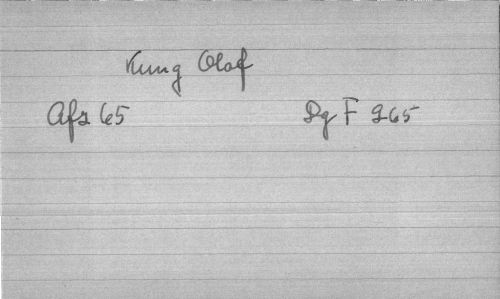 Kung Olof
Afz 65
Dg F 265